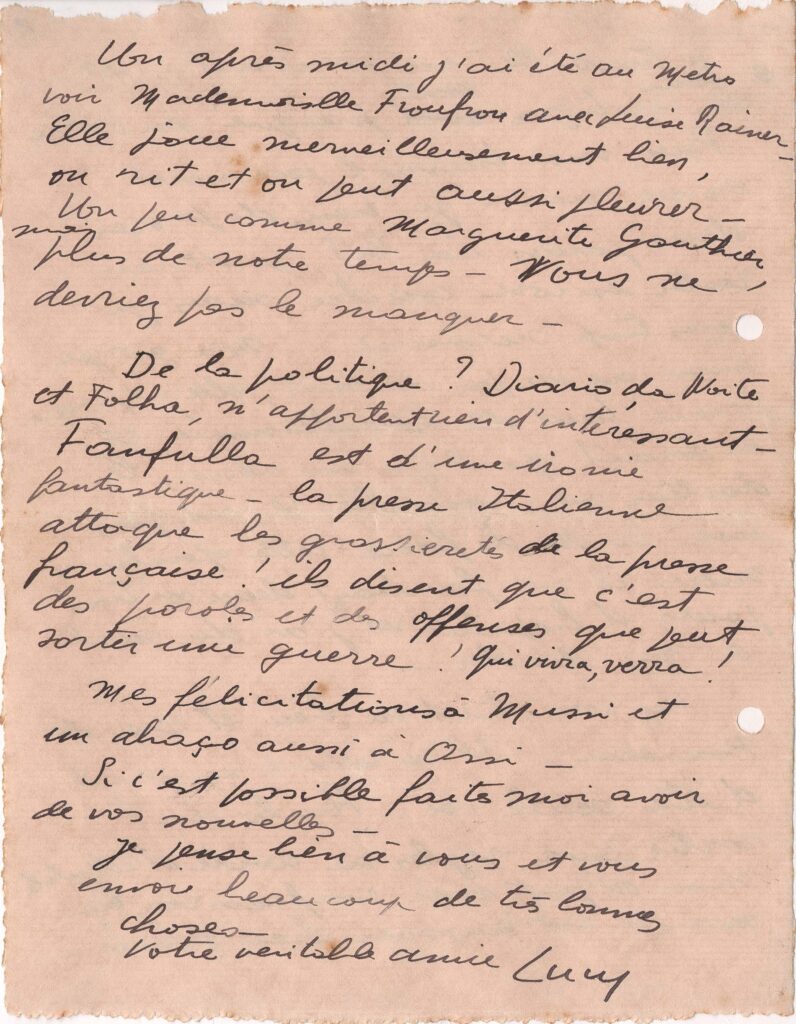 Un après midi j'ai été au Metro
voir Mademoiselle Froufrou avec Luise Rainer -
Elle joue merveilleusement bien,
on rit et on peut aussi pleurer -
Un peu comme Marguerite Gauthier,
mais
plus de notre temps - Vous ne
devriez pas le manquer -
De la politique ? Diario da Noite
et Folha, n'apportent rien d'intéressant -
Fanfulla est d'une ironie
fantastique - la presse Italienne
attaque les grossieretés de la presse
française ! ils disent que c'est
des paroles et des offenses que peut
sortir une guerre ! Qui vivra, verra !
Mes félicitations à Mussi et
un abraço aussi à Ossi -
Si c'est possible faites moi avoir
de vos nouvelles -
je pense bien à vous et vous
envoie beaucoup de très bonnes
choses -
Votre veritable amie Lucy